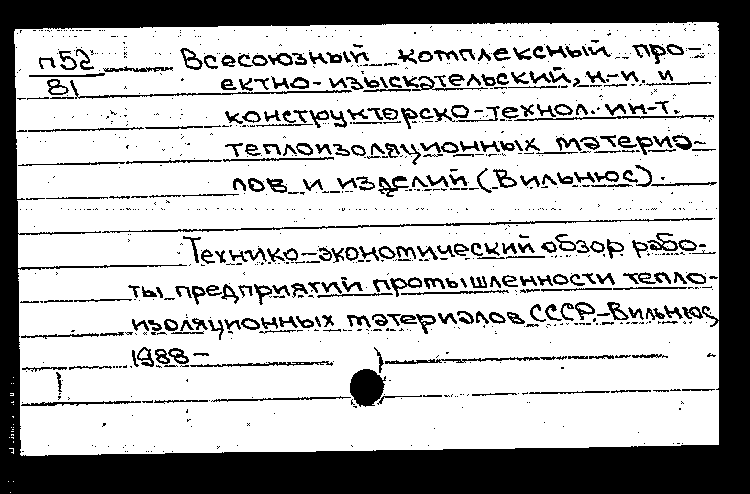 п52 Всесоюзный комплексный про-
81 ектно-изыскательский, н-и. и
конструкторско-технол. ин-т.
теплоизоляционных материа-
лов и изделий (Вильнюс).
Технико-экономический обзор рабо-
ты предприятий промышленности тепло-
изоляционных материалов СССР.-Вильнюс,
1988-